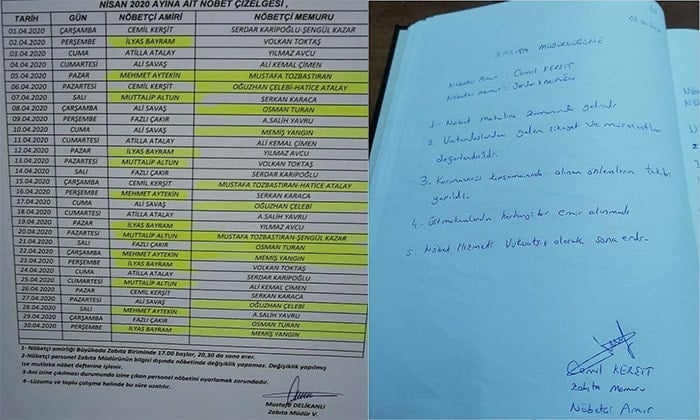 NİSAN 2020 AYINA AİT NÖBET ÇİZELGESİ,
TARİH GÜN NÖBETÇİ AMİRİ NÖBETÇİ MEMURU
01.04.2020 ÇARŞAMBA CEMİL KERŞİT SERDAR KARİPOĞLU-ŞENGÜL KAZAR
02.04.2020 PERŞEMBE İLYAS BAYRAM VOLKAN TOKTAŞ
03.04.2020 CUMA ATİLLA ATALAY YILMAZ AVCU
04.04.2020 CUMARTESİ ALİ SAVAŞ ALİ KEMAL ÇİMEN
05.04.2020 PAZAR MEHMET AYTEKİN MUSTAFA TOZBASTIRAN
06.04.2020 PAZARTESİ CEMİL KERŞİT OĞUZHAN ÇELEBİ-HATİCE ATALAY
07.04.2020 SALI MUTTALİP ALTUN SERKAN KARACA
08.04.2020 ÇARŞAMBA ALİ SAVAŞ OSMAN TURAN
09.04.2020 PERŞEMBE FAZLI ÇAKIR A.SALİH YAVRU
10.04.2020 CUMA ALİ SAVAŞ MEMİŞ YANGIN
11.04.2020 CUMARTESİ ATİLLA ATALAY ALİ KEMAL ÇİMEN
12.04.2020 PAZAR İLYAS BAYRAM YILMAZ AVCU
13.04.2020 PAZARTESİ MUTTALİP ALTUN VOLKAN TOKTAŞ
14.04.2020 SALI FAZLI ÇAKIR SERDAR KARİPOĞLU
15.04.2020 ÇARŞAMBA CEMİL KERŞİT MUSTAFA TOZBASTIRAN-HATİCE ATALAY
16.04.2020 PERŞEMBE MEHMET AYTEKİN SERKAN KARACA
17.04.2020 CUMA ALİ SAVAŞ OĞUZHAN ÇELEBİ
18.04.2020 CUMARTESİ ATİLLA ATALAY A.SALİH YAVRU
19.04.2020 PAZAR İLYAS BAYRAM YILMAZ AVCU
20.04.2020 PAZARTESİ MUTTALİP ALTUN MUSTAFA TOZBASTIRAN-ŞENGÜL KAZAR
21.04.2020 SALI FAZLI ÇAKIR OSMAN TURAN
22.04.2020 ÇARŞAMBA MEHMET AYTEKİN MEMİŞ YANGIN
23.04.2020 PERŞEMBE İLYAS BAYRAM VOLKAN TOKTAŞ
24.04.2020 CUMA ATİLLA ATALAY SERDAR KARİPOĞLU
25.04.2020 CUMARTESİ MUTTALİP ALTUN ALİ KEMAL ÇİMEN
26.04.2020 PAZAR CEMİL KERŞİT SERKAN KARACA
27.04.2020 PAZARTESİ ALİ SAVAŞ OĞUZHAN ÇELEBİ
28.04.2020 SALI MEHMET AYTEKİN A.SALİH YAVRU
29.04.2020 ÇARŞAMBA FAZLI ÇAKIR OSMAN TURAN
30.04.2020 PERŞEMBE İLYAS BAYRAM MEMİŞ YANGIN
1- Nöbetçi amirliği Büyükada Zabıta Biriminde 17.00 başlar, 20,30 da sona erer.
2-Nöbetçi personel Zabıta Müdürünün bilgisi dışında nöbetinde değişiklik yapamaz. Değişiklik yapılmış
ise mutlaka nöbet defterine işlenir.
3-Ani izine çıkılması durumunda izine çıkan personel nöbetini ayarlamak zorundadır.
4-Lüzumu ve toplu çalışma halinde bu süre uzatılır.
Mustafa DELİKANLI
Zabıta Müdür V.
ZABITA MÜDÜRLÜĞÜNE
Nöbetçi Amir : Cemil KERŞİT
Nöbetçi memur : Serdar KARİPOĞLU
1- Nöbet mahaline zamanında gelindi
2. Vatandaşlardan gelen şikayet ve müracaatları
değerlendirildi.
3. Koronavirüs kapsamında alınan önlemlerin takibi
yapıldı.
4. Üst makamlardan herhangi bir emir alınmadı
5. Nöbet Hizmeti Vukuatsız olarak sona erdi.
Cemil KERŞİT
Zabıta Memuru
Nöbetçi Amir